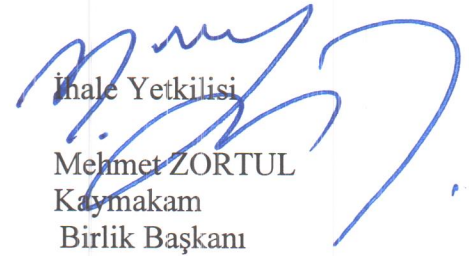 İhale Yetkilisi
Mehmet ZORTUL
Kaymakam
Birlik Başkanı